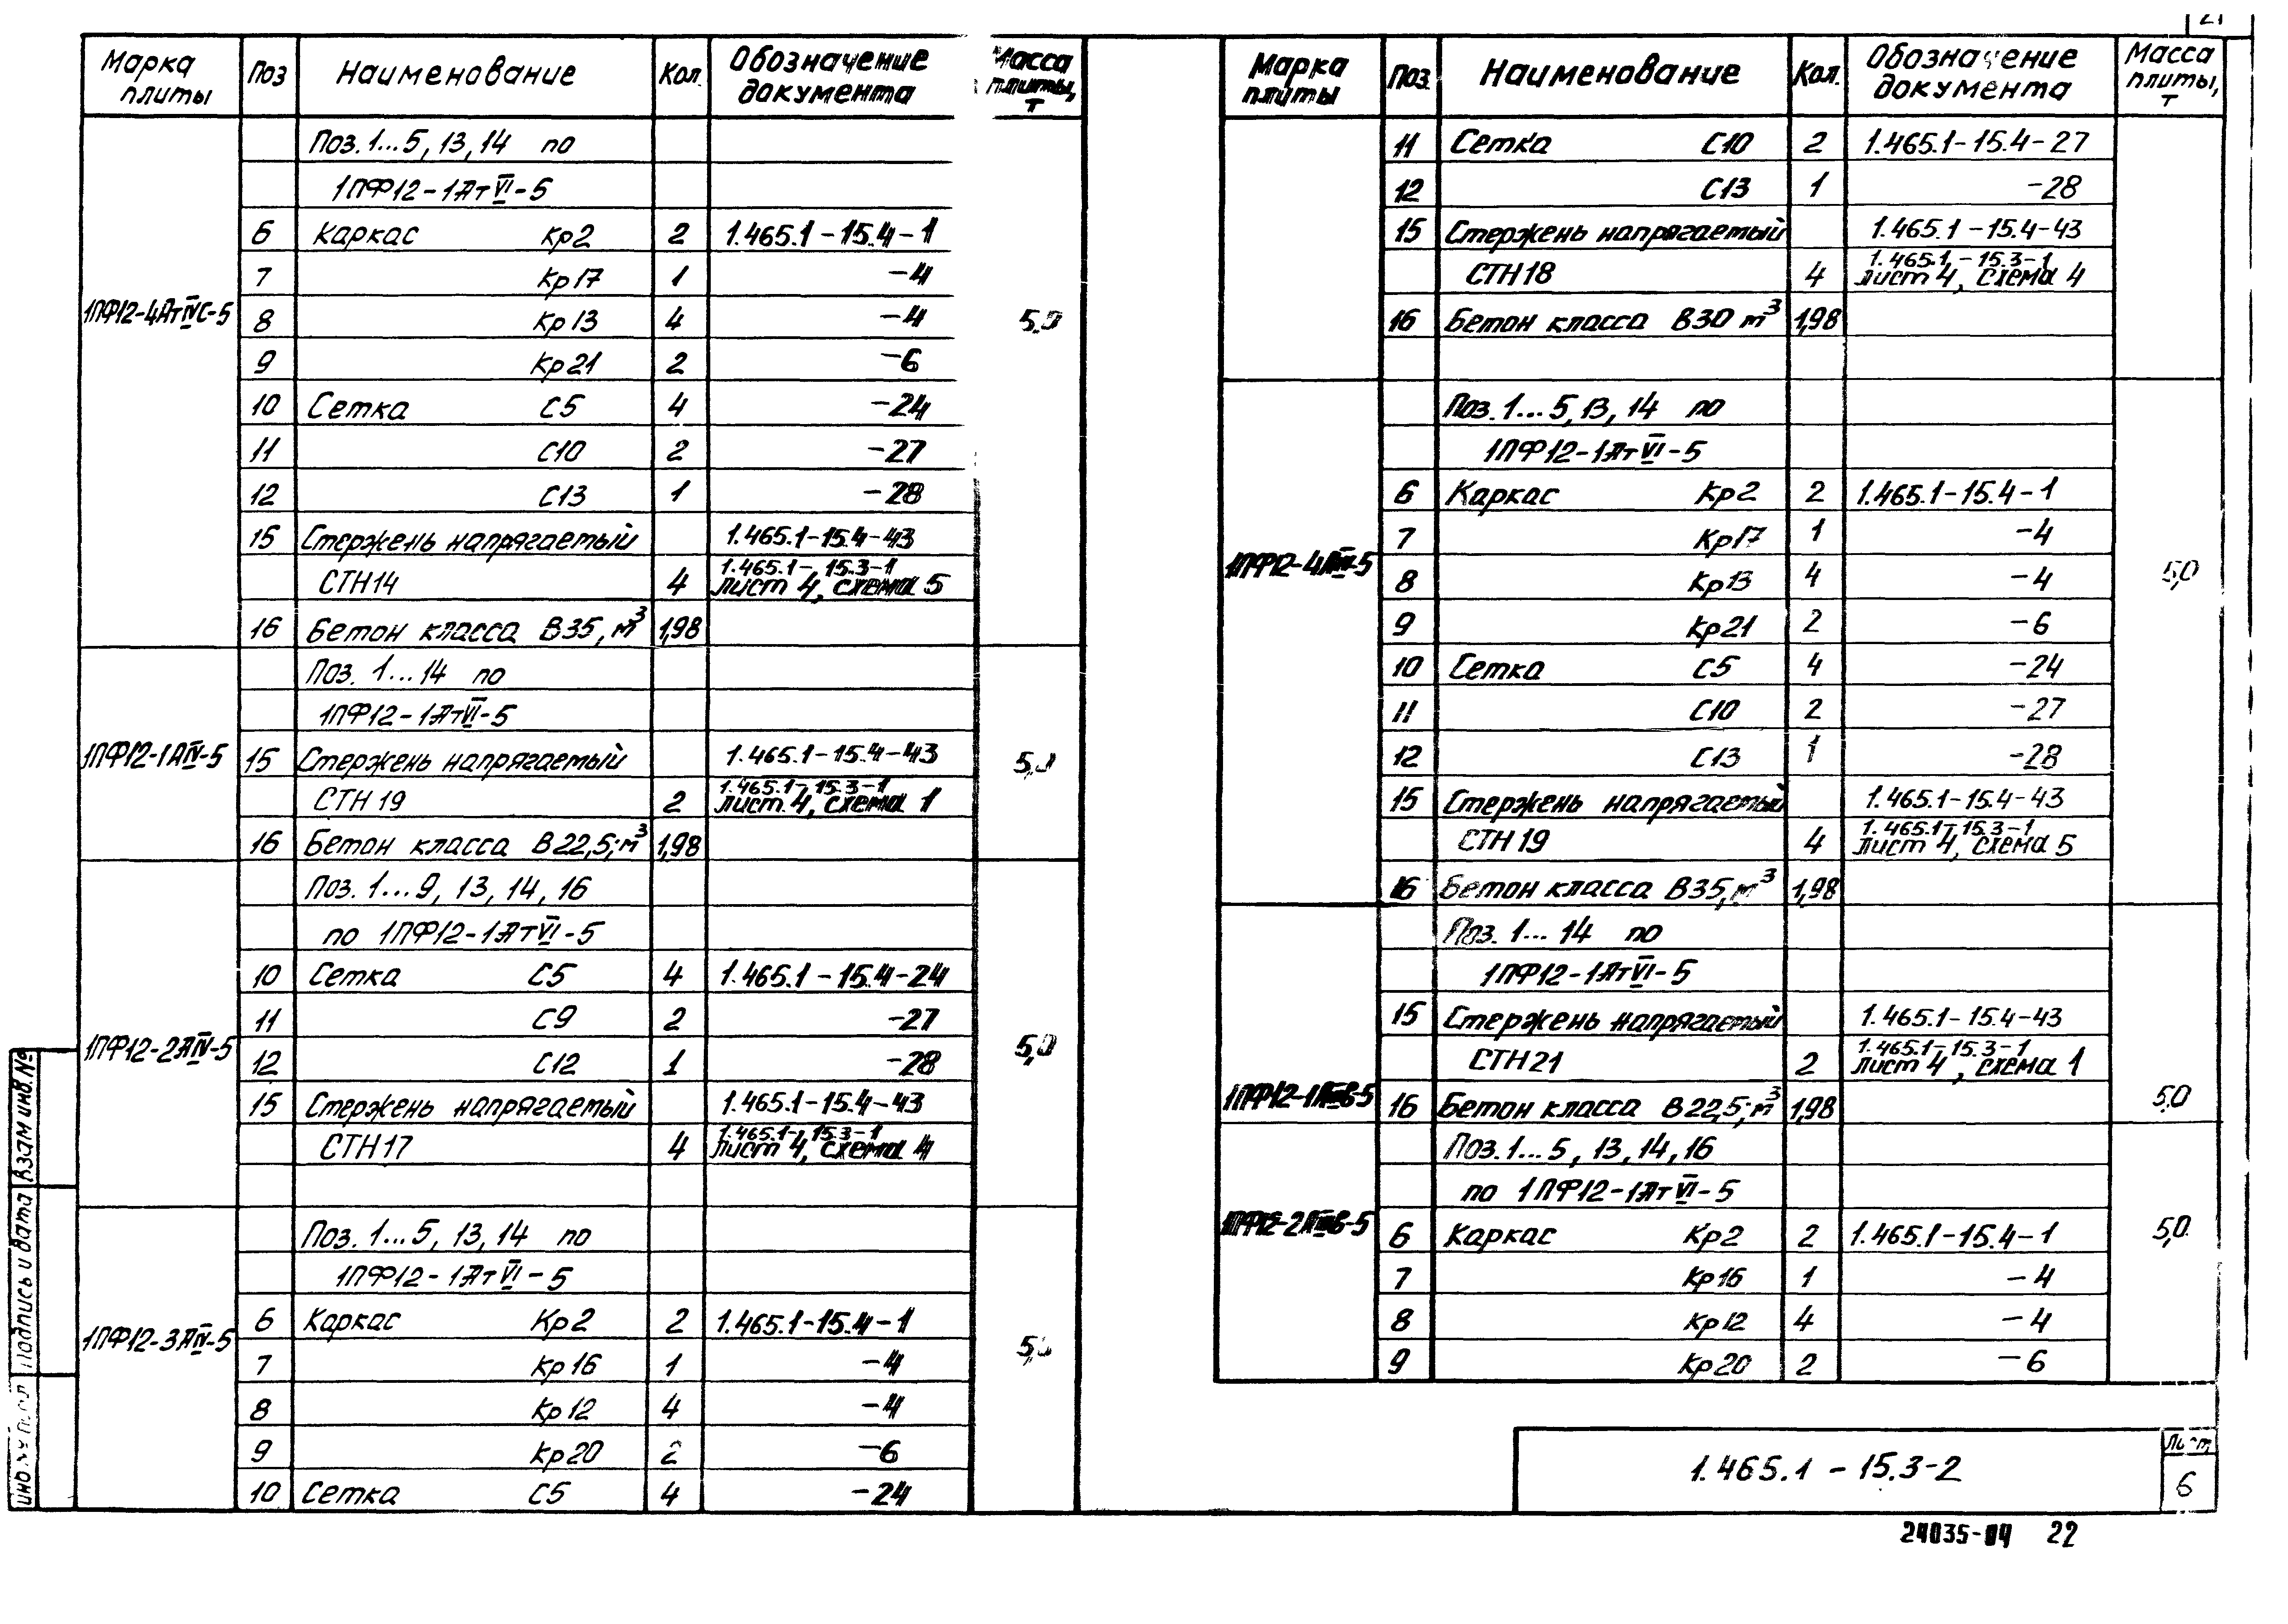 21
Марка плиты Поз Наименование Кол. Обозначение документа Масса плиты, т
Поз. 1...5, 13, 14 по
1ПФ12-1АтVI-5
6 Каркас Кр2 2 1.465.1-15.4-1
7 Кр17 1 -4
1ПФ12-4АтIVС-5 8 Кр13 4 -4 5,0
9 Кр21 2 -6
10 Сетка С5 4 -24
11 С10 2 -27
12 С13 1 -28
15 Стержень напрягаемый 1.465.1-15.4-43
СТН14 4 1.465.1-15.3-1 лист 4, схема 5
16 Бетон класса В35, м³ 1,98
Поз. 1...14 по
1ПФ12-1АтVI-5
1ПФ12-1АIV-5 15 Стержень напрягаемый 1.465.1-15.4-43 5,0
СТН19 2 1.465.1-15.3-1 лист 4, схема 1
16 Бетон класса В22,5; м³ 1,98
Поз. 1...9, 13, 14, 16
по 1ПФ12-1АтVI-5
10 Сетка С5 4 1.465.1-15.4-24
11 С9 2 -27
1ПФ12-2АIV-5 12 С12 1 -28 5,0
15 Стержень напрягаемый 1.465.1-15.4-43
СТН17 4 1.465.1-15.3-1 лист 4, схема 4
Поз. 1...5, 13, 14 по
1ПФ12-1АтVI-5
6 Каркас Кр2 2 1.465.1-15.4-1
1ПФ12-3АIV-5 7 Кр16 1 -4
8 Кр12 4 -4
9 Кр20 2 -6
10 Сетка С5 4 -24
Марка плиты Поз. Наименование Кол. Обозначение документа Масса плиты, т
11 Сетка С10 2 1.465.1-15.4-27
12 С13 1 -28
15 Стержень напрягаемый 1.465.1-15.4-43
СТН18 4 1.465.1-15.3-1 лист 4, схема 4
16 Бетон класса В30 м³ 1,98
Поз. 1...5, 13, 14 по
1ПФ12-1АтVI-5
6 Каркас Кр2 2 1.465.1-15.4-1
7 Кр17 1 -4
8 Кр13 4 -4 5,0
9 Кр21 2 -6
10 Сетка С5 4 -24
11 С10 2 -27
12 С13 1 -28
15 Стержень напрягаемый 1.465.1-15.4-43
СТН19 4 1.465.1-15.3-1 лист 4, схема 5
16 Бетон класса В35, м³ 1,98
Поз. 1...14 по
1ПФ12-1АтVI-5
15 Стержень напрягаемый 1.465.1-15.4-43
СТН21 2 1.465.1-15.3-1 лист 4, схема 1
16 Бетон класса В22,5; м³ 1,98 5,0
Поз. 1...5, 13, 14, 16
по 1ПФ12-1АтVI-5
6 Каркас Кр2 2 1.465.1-15.4-1 5,0
7 Кр16 1 -4
8 Кр12 4 -4
9 Кр20 2 -6
Взам инв. №
Подпись и дата
1.465.1-15.3-2
Лист
6
24035-04 22